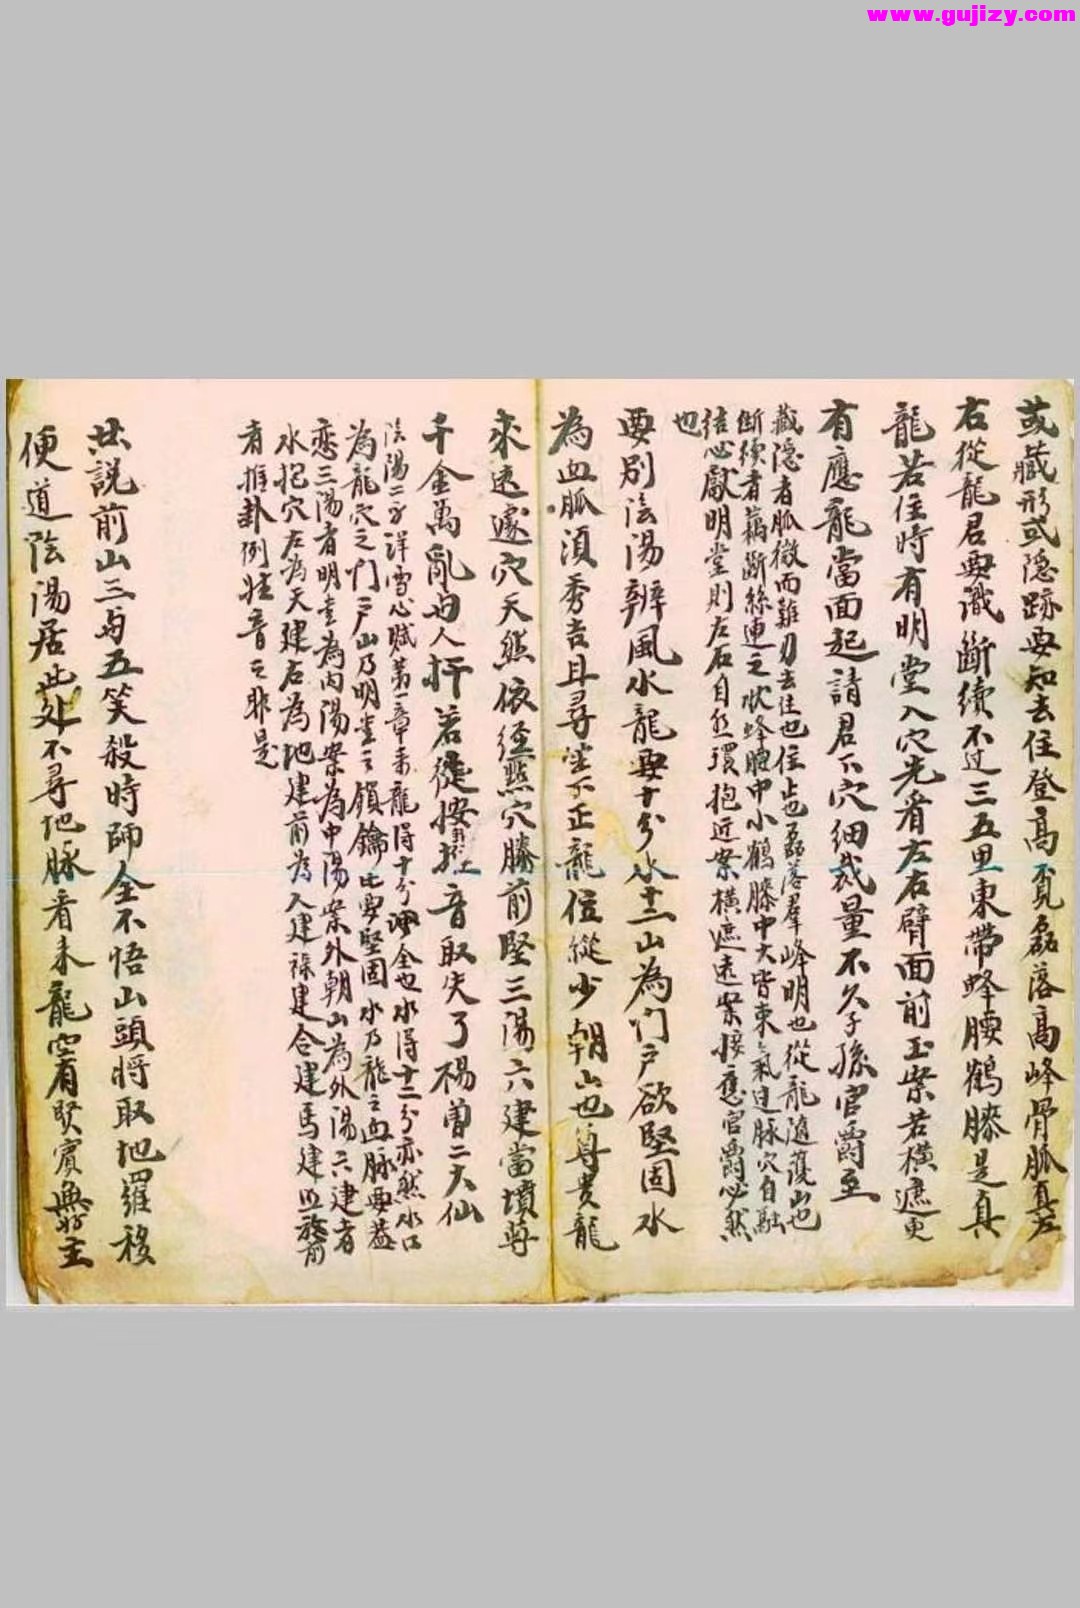 www.gujizy.com
或藏形或隱跡要知去住登高覓磊落高峰骨脈真左
右從龍君要識斷續不过三五里東帶蜂腰鶴膝是真
龍若住時有明堂入穴先看左右臂面前玉案若橫遮更
有應龍當面起請君下穴細裁量不久子孫官爵至
藏隱者脈微而難去住也住止也磊落羣峰明也從龍隨護山也
断續者藕斷絲連之狀蜂腰中小鶴膝中大皆束氣过脉穴自融
結心獻明堂則左右自然環抱近案橫遮远案接應官爵必然
也
要别陰陽辨風水龍要十分水十二山為门户欲堅固水
為血脈須秀吉且尋坐下正龍位縱少朝山也尊贵龍
來远遽穴天然依逕點穴勝前堅三陽六建當墳前
千金萬乱与人扦若從按音取失了楊曾二大仙
陰陽二字详雪心赋第一章來龍得十分全也水得十二分亦然水口
為龍穴之门户山乃明堂之鎖鑰比要堅固水乃龍之血脉要益
恋三陽者明堂為内陽案為中陽案外朝山為外陽六建者
水抱穴左為天建右為地建前為人建禄建合建馬建並於前
者推卦例姓音之非是
共說前山三与五笑殺時師全不悟山頭將取地羅移
便道陰陽居此处不尋地脉看来龍空有賢賓無好主